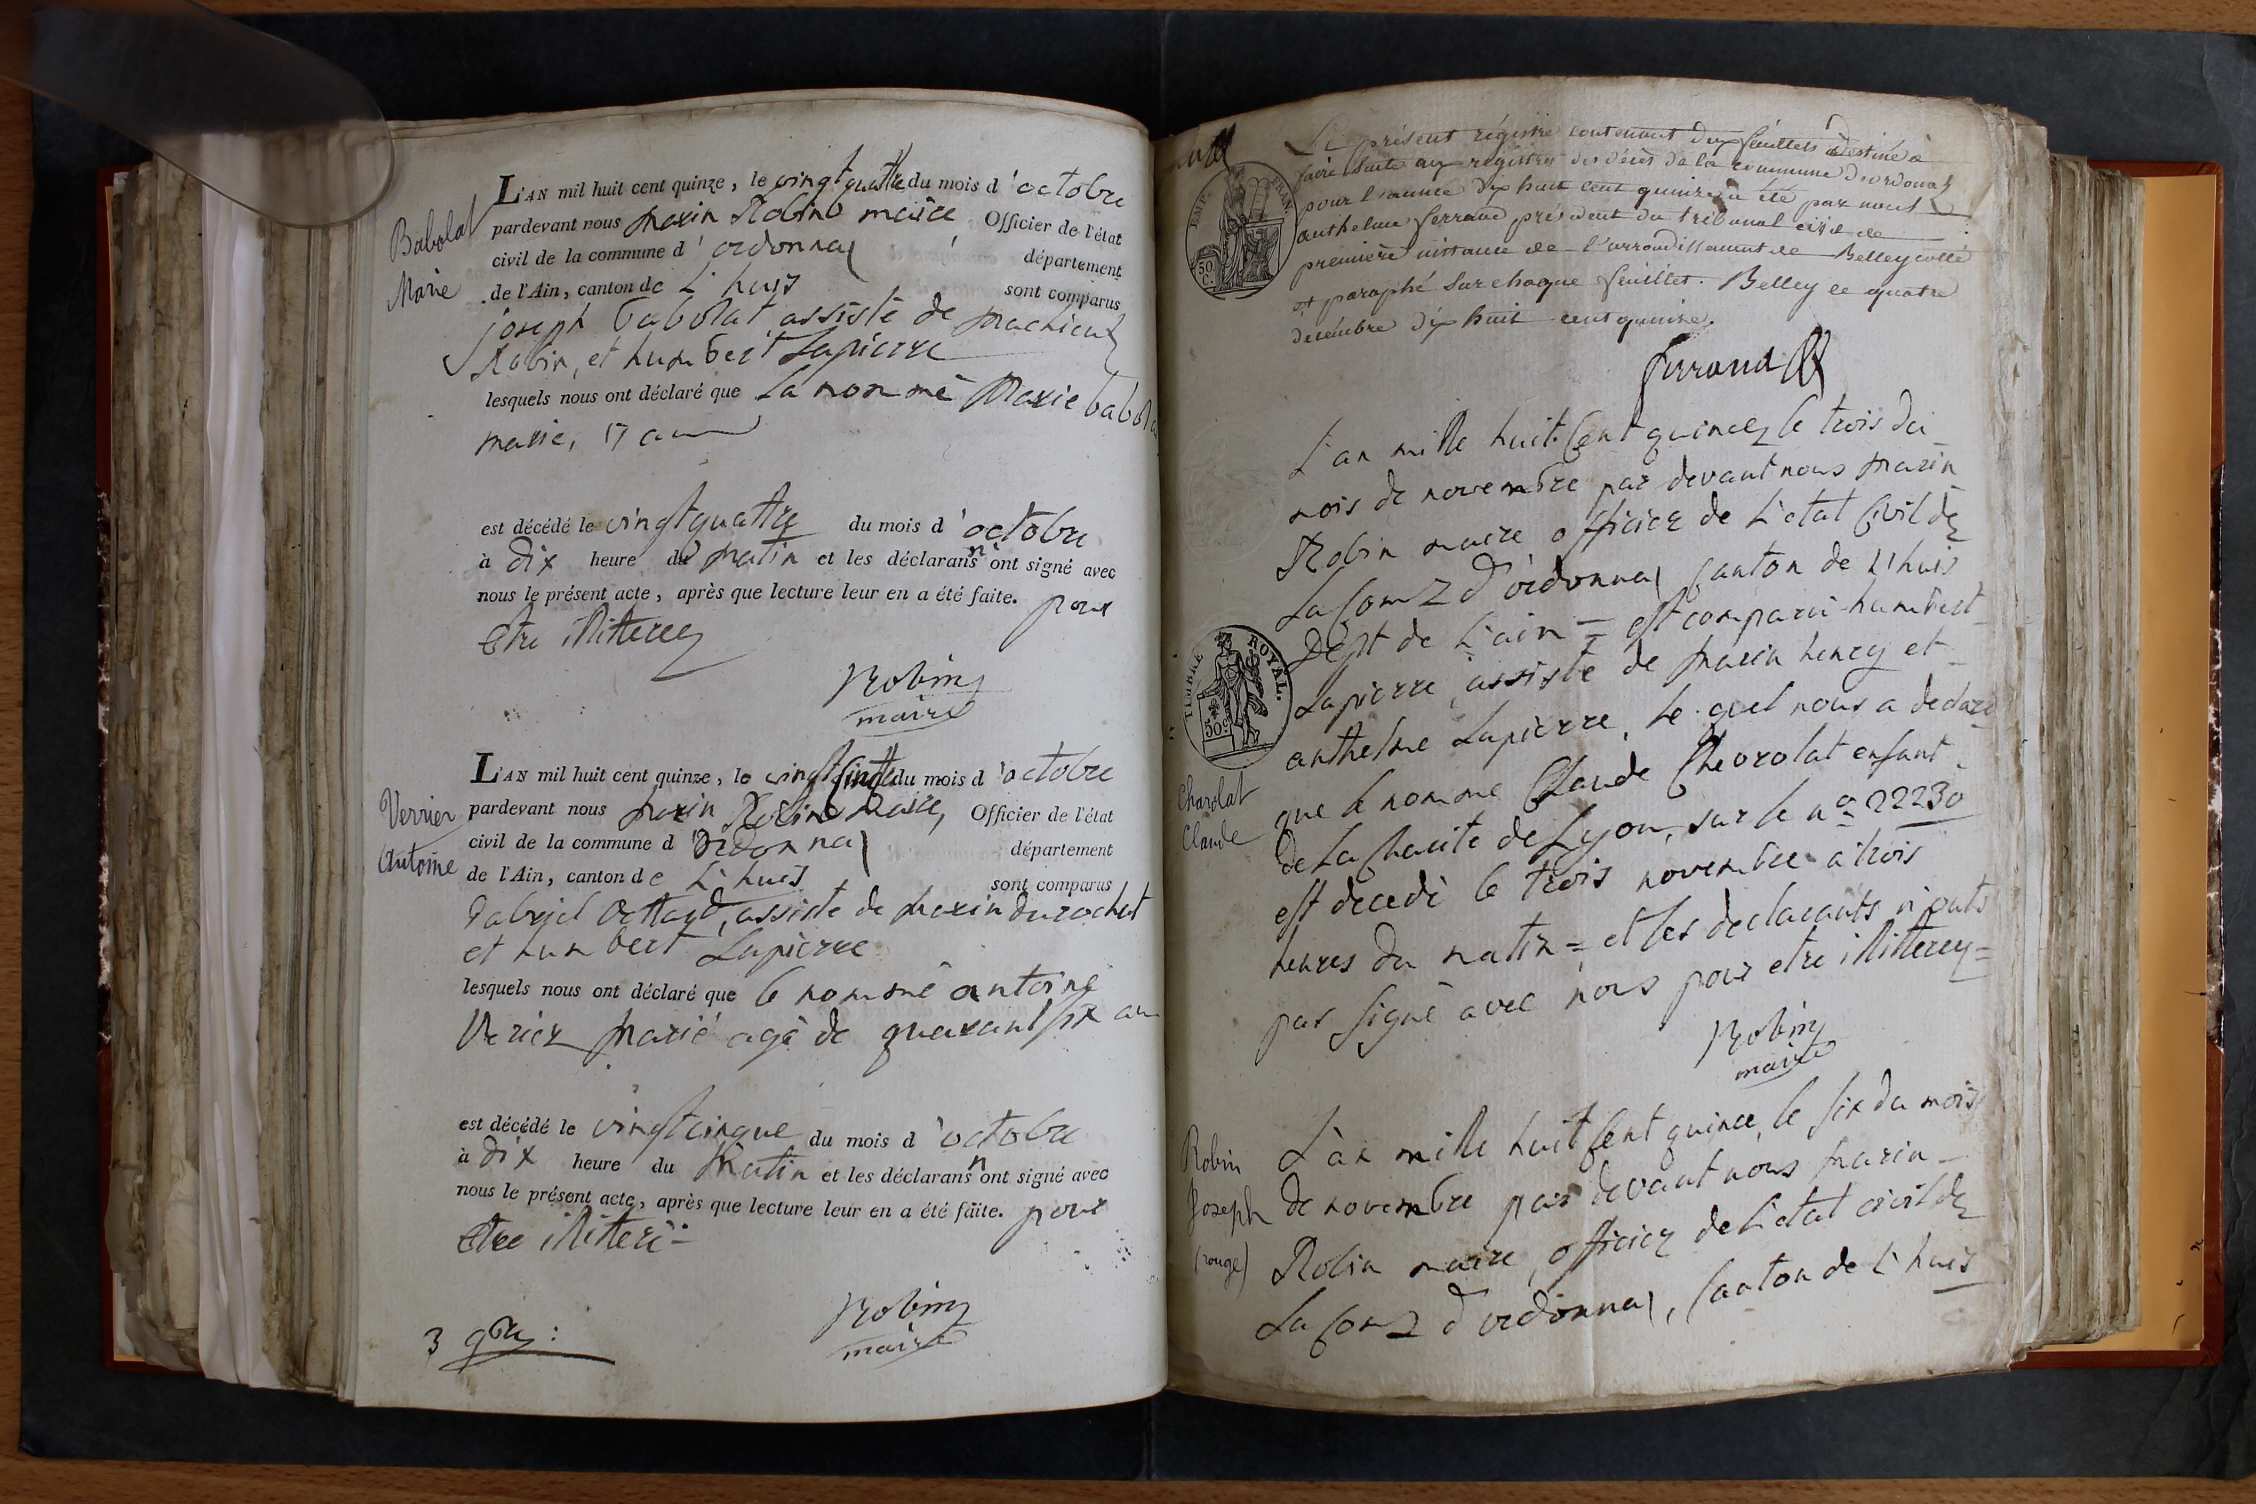 Babolat
Marie
L'AN mil huit cent quinze, le vingt quattre du mois d'octobre
pardevant nous marin Robin maire Officier de l'état
civil de la commune d'ordonnaz département
de l'Ain, canton de L'huis sont comparus
joseph babolat assisté de mathieu
Robin, et humbert Lapierre
lesquels nous ont déclaré que la nommé Marie babolat
marie, 17 ans
est décédé le vingtquattre du mois d'octobre
à dix heure du matin et les déclarans n'ont signé avec
nous le présent acte, après que lecture leur en a été faite. pour
Etre illitterez
Robin
maire
Verrier
Antoine
L'AN mil huit cent quinze, le vingt cinq du mois d'octobre
pardevant nous marin Robin maire, Officier de l'état
civil de la commune d'ordonnaz département
de l'Ain, canton de L'huis sont comparus
gabriel, assisté de marin durochat
et humbert Lapierre
lesquels nous ont déclaré que le nommé antoine
Verier marié agé de quarant six ans
est décédé le vingtcinque du mois d'octobre
à dix heure du matin et les déclarans n'ont signé avec
nous le présent acte, après que lecture leur en a été faite. pour
Etre illitteré =
Robin
maire
3
EMP. FRAN.
50 C.
Le présent régistre contenant dix feuillets destiné à
faire suite aux régistres des décès de la commune d'ordonnaz
pour l'année dix huit cent quinze a été par nous
anthelme ferrand président du tribunal civil de
première instance de l'arrondissement de Belley cotté
et paraphé sur chaque feuillet. Belley ce quatre
decembre dix huit cent quinze.
ferrand
L'an mille huit Cent quince, le trois du
mois de novembre par devant nous marin
Robin maire officier de L'etat Civil de
La Com d'ordonnaz Canton de L'huis
Dept de L'ain = est comparu humbert
TIMBRE ROYAL.
50c
Lapierre, assisté de marin henry et
anthelme Lapierre, le quel nous a declaré
Charolat
Claude
que le nomme Claude Cheorolat enfant
de La Charité de Lyon, sur le n° 22230
est decedé le trois novembre a trois
heures du matin = et les declarants n'onts
pas signé avec nous pour etre illitterez =
Robin
maire
Robin
Joseph
(rouge)
L'an mille huit Cent quince, le six du mois
de novembre par devant nous marin
Robin maire, officier de L'etat civil de
La Com d'ordonnaz, Canton de L'huis